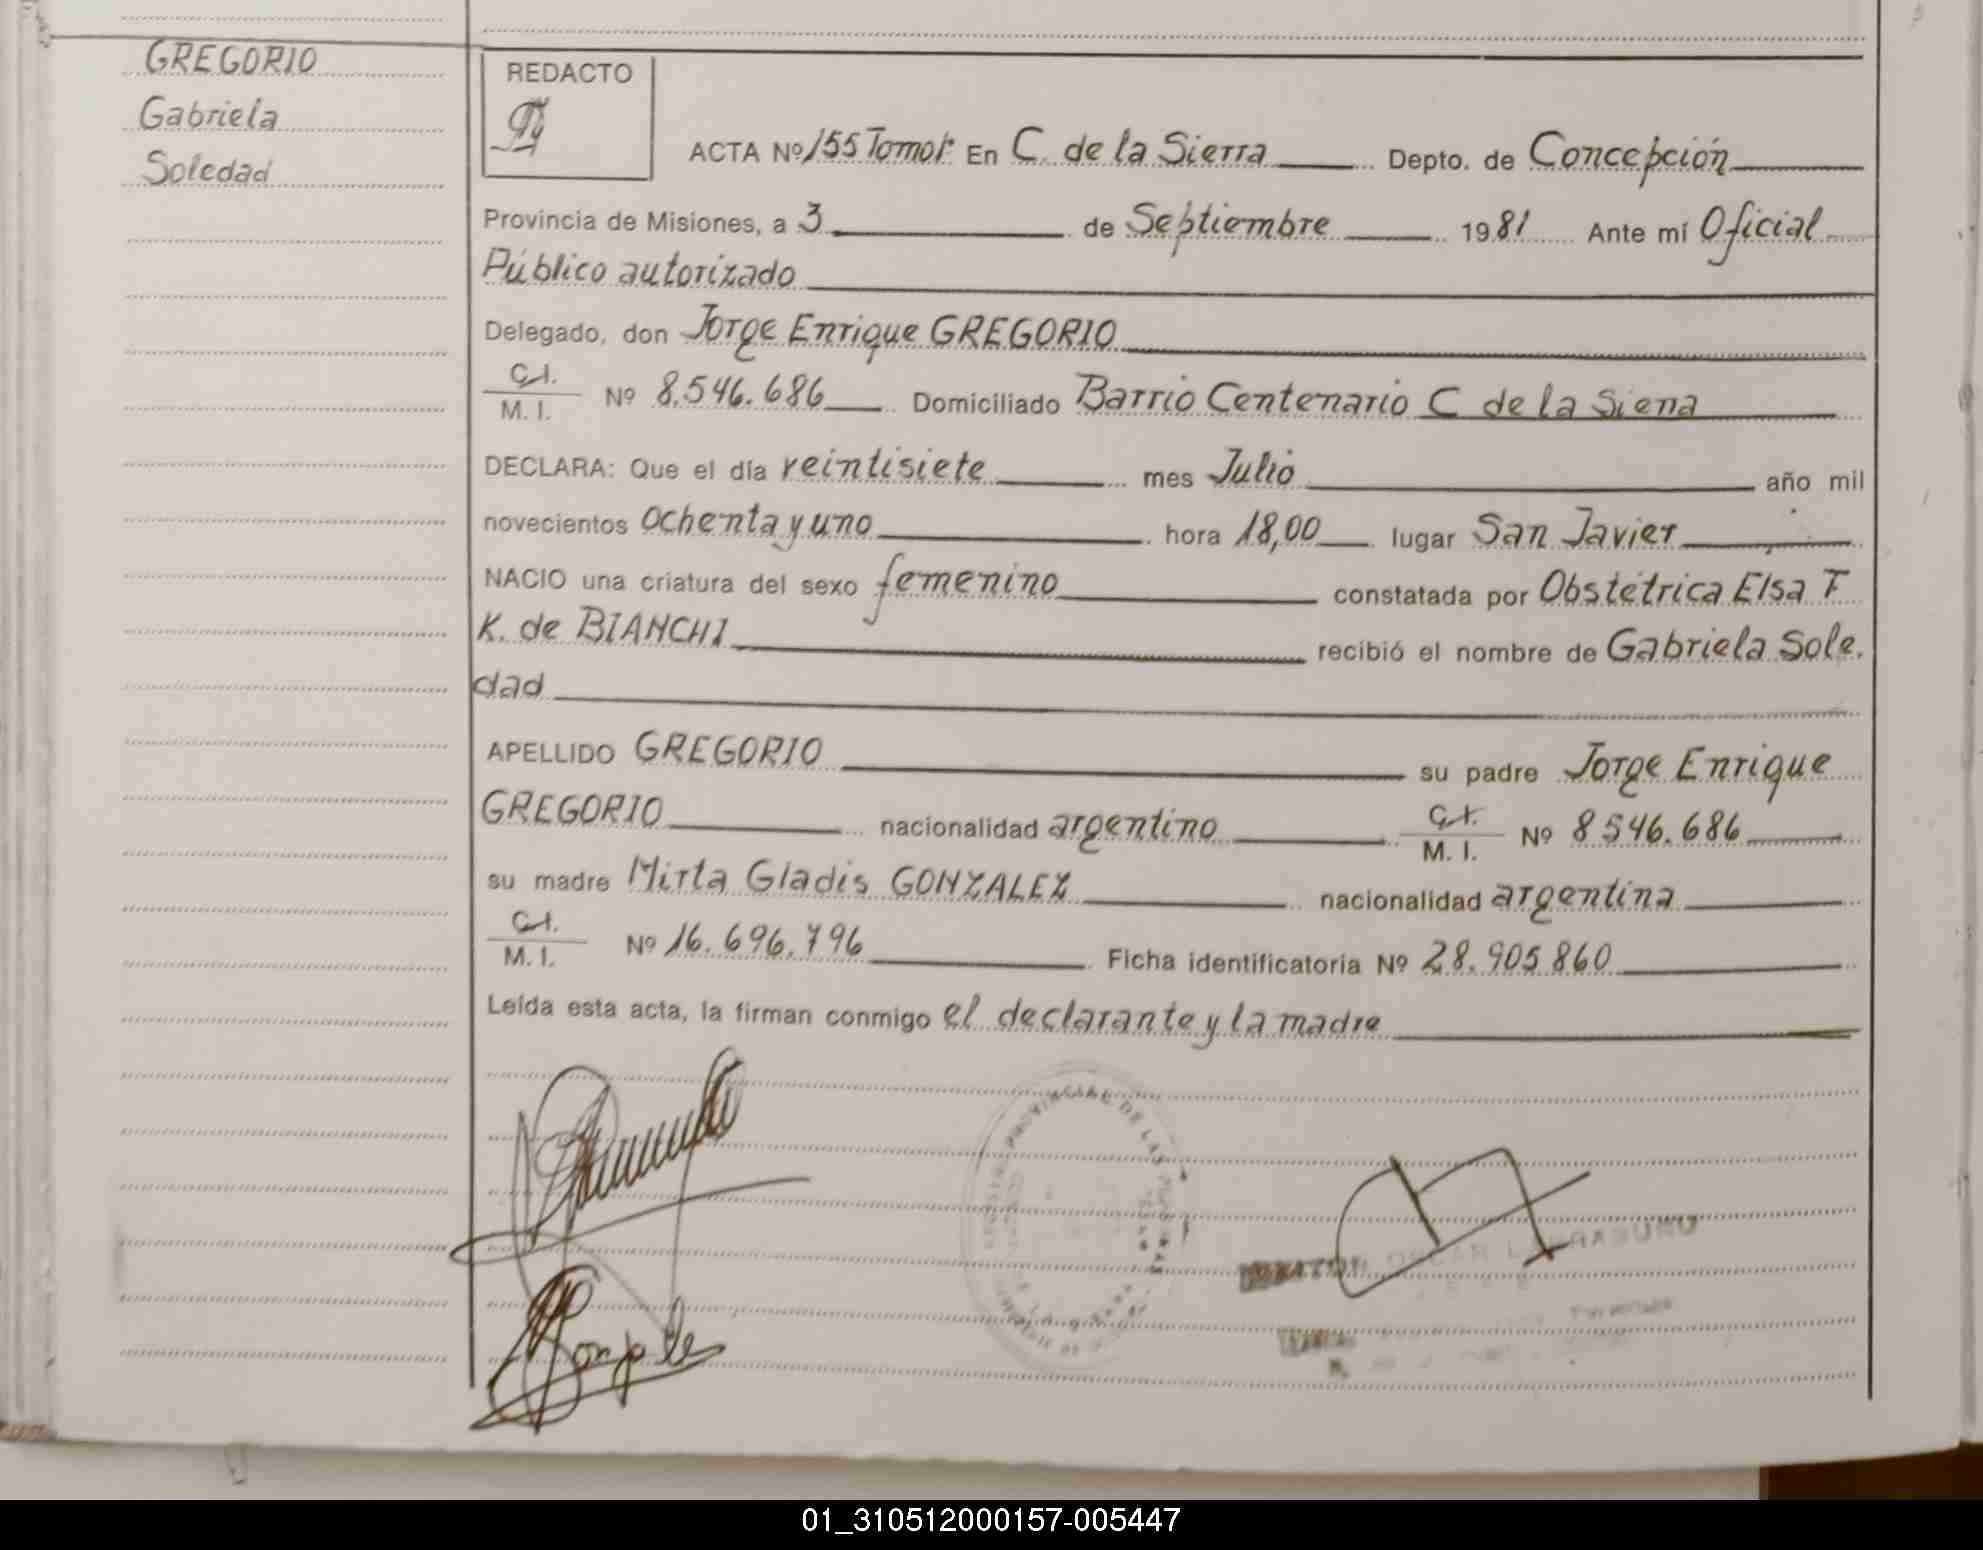 GREGORIO
Gabriela
Soledad
REDACTO
ACTA Nº 155 Tomo 1º En C. de la Sierra Depto. de Concepción
Provincia de Misiones, a 3 de Septiembre 1981 Ante mí Oficial
Público autorizado
Delegado, don Jorge Enrique GREGORIO
C.I. / M.I. Nº 8.546.686 Domiciliado Barrio Centenario C de la Sierra
DECLARA: Que el día veintisiete mes Julio año mil
novecientos ochenta y uno hora 18,00 lugar San Javier
NACIO una criatura del sexo femenino constatada por Obstétrica Elsa F
K. de BIANCHI recibió el nombre de Gabriela Sole.
dad
APELLIDO GREGORIO su padre Jorge Enrique
GREGORIO nacionalidad argentino C.I. / M.I. Nº 8546.686
su madre Mirta Gladis GONZALEZ nacionalidad argentina
C.I. / M.I. Nº 16.696.796 Ficha identificatoria Nº 28.905860
Leída esta acta, la firman conmigo el declarante y la madre
PROVINCIAL DE LAS
OSCAR LARRABURU
01_310512000157-005447